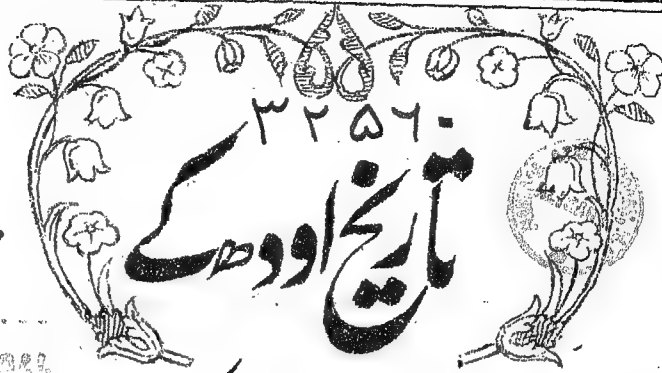 ۳۲۵۶۰
تاریخ اودھ کے